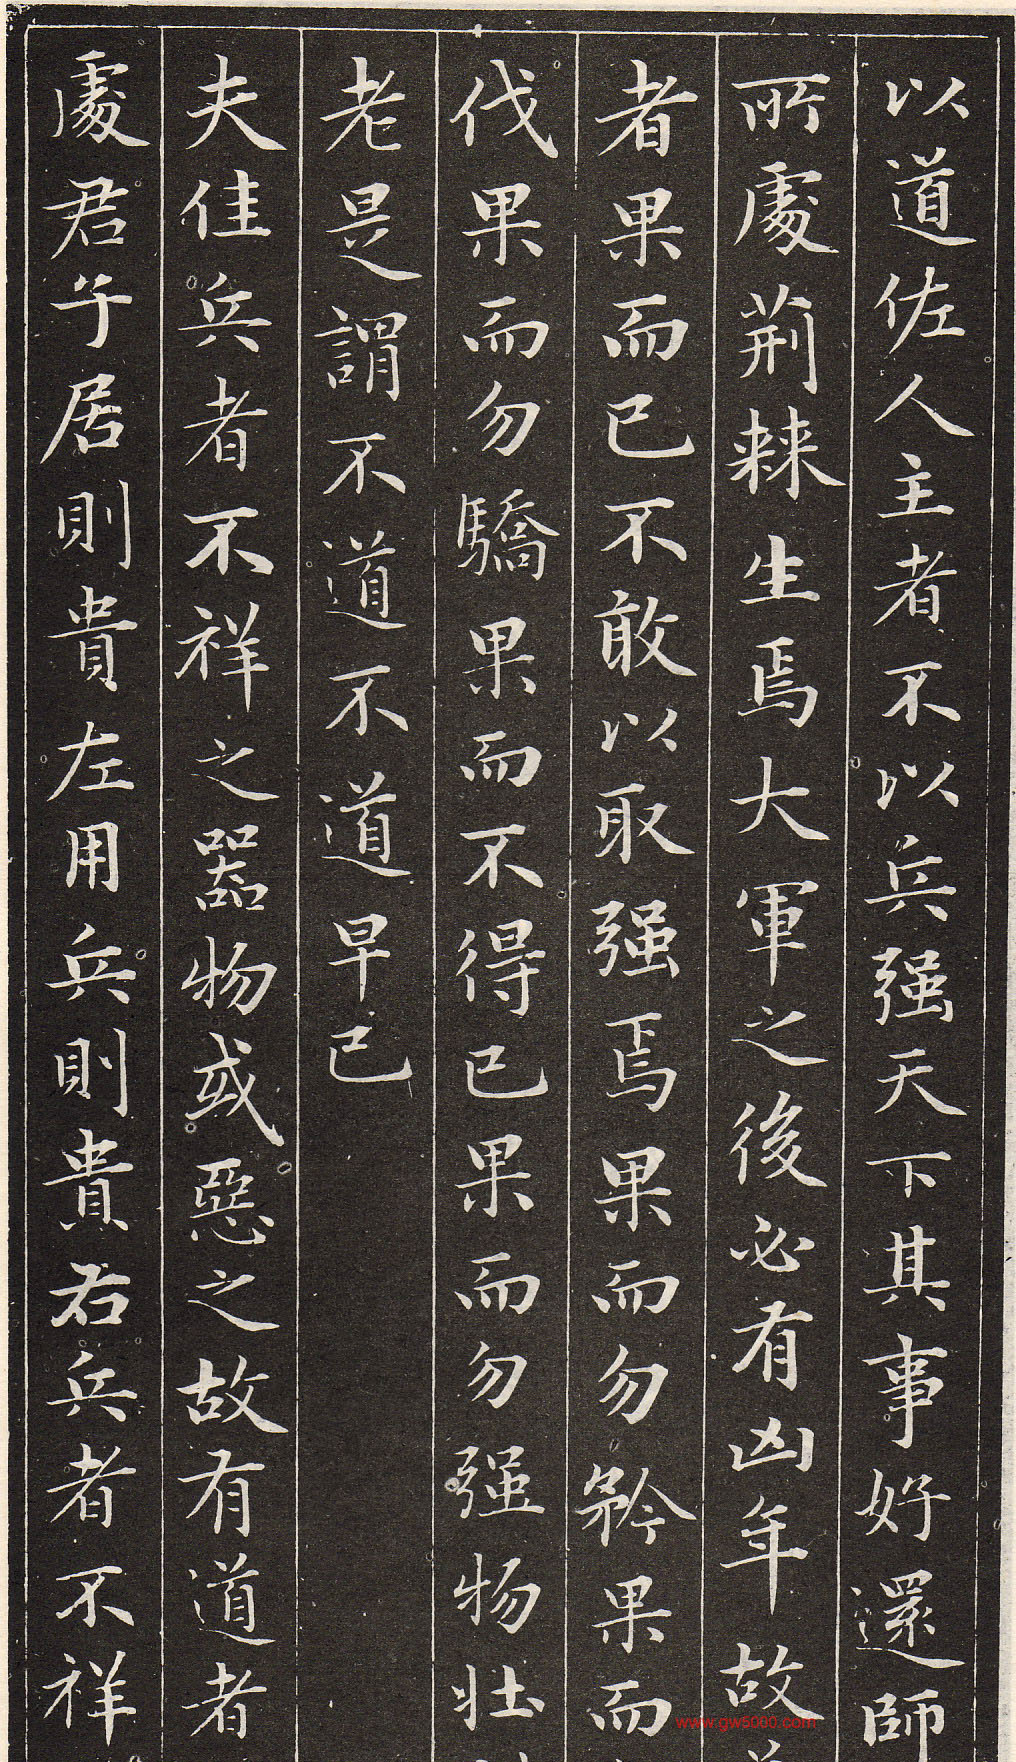 以道佐人主者不以兵强天下其事好還師
所處荆棘生焉大軍之後必有凶年故
者果而已不敢以取强焉果而勿矜果而
伐果而勿驕果而不得已果而勿强物壮
老是謂不道不道早已
夫佳兵者不祥之器物或惡之故有道者
處君子居則貴左用兵則貴右兵者不祥
www.gw5000.com